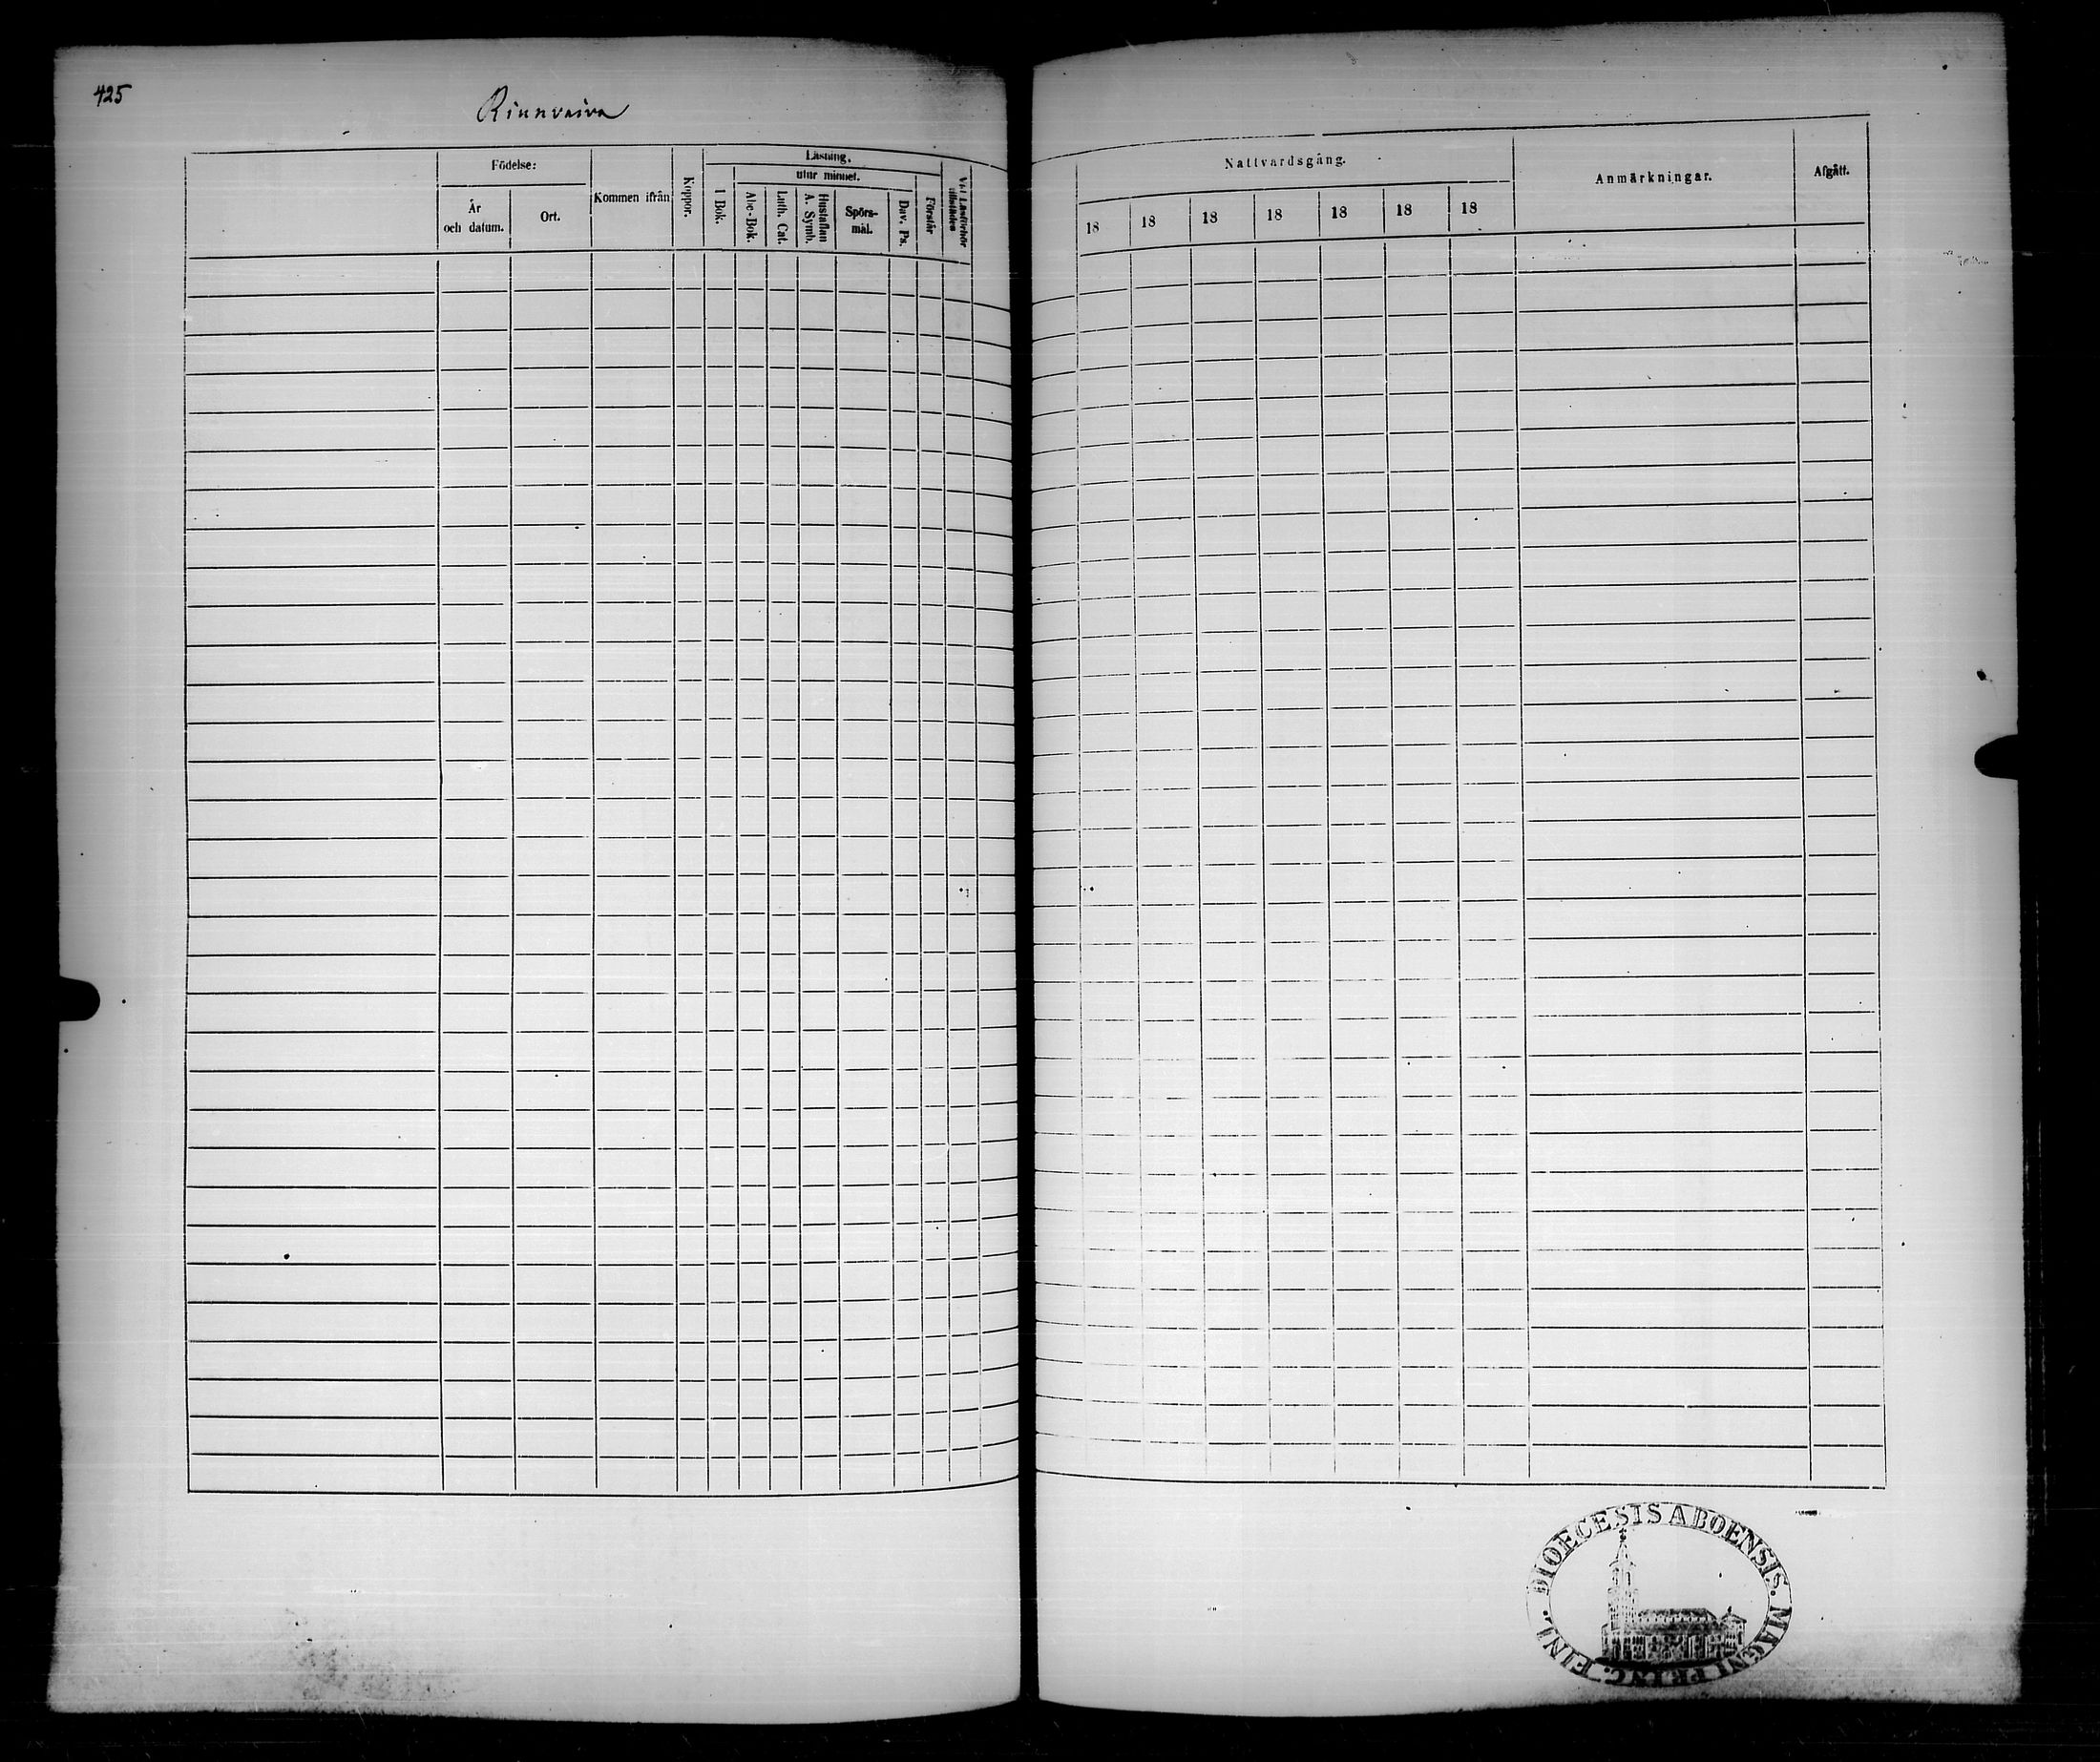 425
Rinnvaiva
Födelse:
År
och datum.
Ort.
Kommen ifrån
Koppor.
Läsning,
utur minnet.
I Bok.
Abc-Bok.
Luth. Cat.
Hustaflan
A. Symb.
Spörs-
mål.
Dav. Ps.
Förstår
Vid Läsförhör
tillstädes
Nattvardsgång.
18 18 18 18 18 18 18
Anmärkningar.
Afgått.
DIOECESIS ABOENSIS. MAGNI PRINC. FINL.